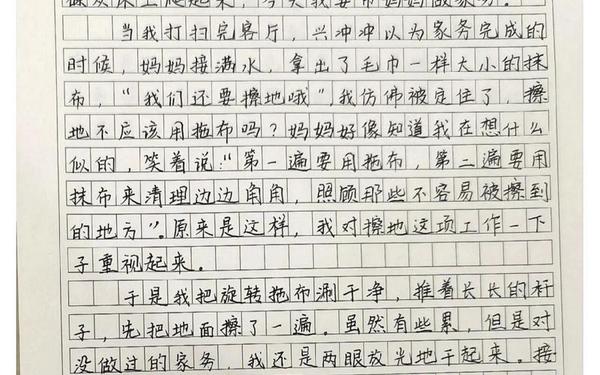 床上爬起来，今天我要帮妈妈做家务。
当我打扫完客厅，兴冲冲以为家务完成的
时候，妈妈接满水，拿出了毛巾一样大小的抹
布，“我们还要擦地哦”，我仿佛被定住了，擦
地不应该用拖布吗？妈妈好像知道我在想什么
似的，笑着说：“第一遍要用拖布，第二遍要用
抹布来清理边边角角，照顾那些不容易被擦到
的地方”。原来是这样，我对擦地这项工作一下
子重视起来。
于是我把旋转拖布涮干净，推着长长的杆
子，先把地面擦了一遍。虽然有些累，但是对
没做过的家务，我还是两眼放光地干起来。接